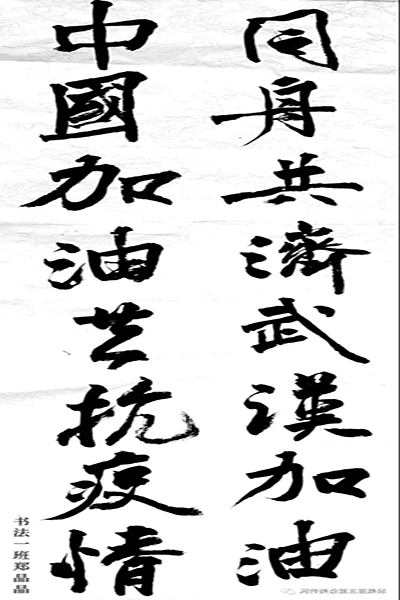 同舟共濟武漢加油
中國加油共抗疫情
书法一班郑晶晶